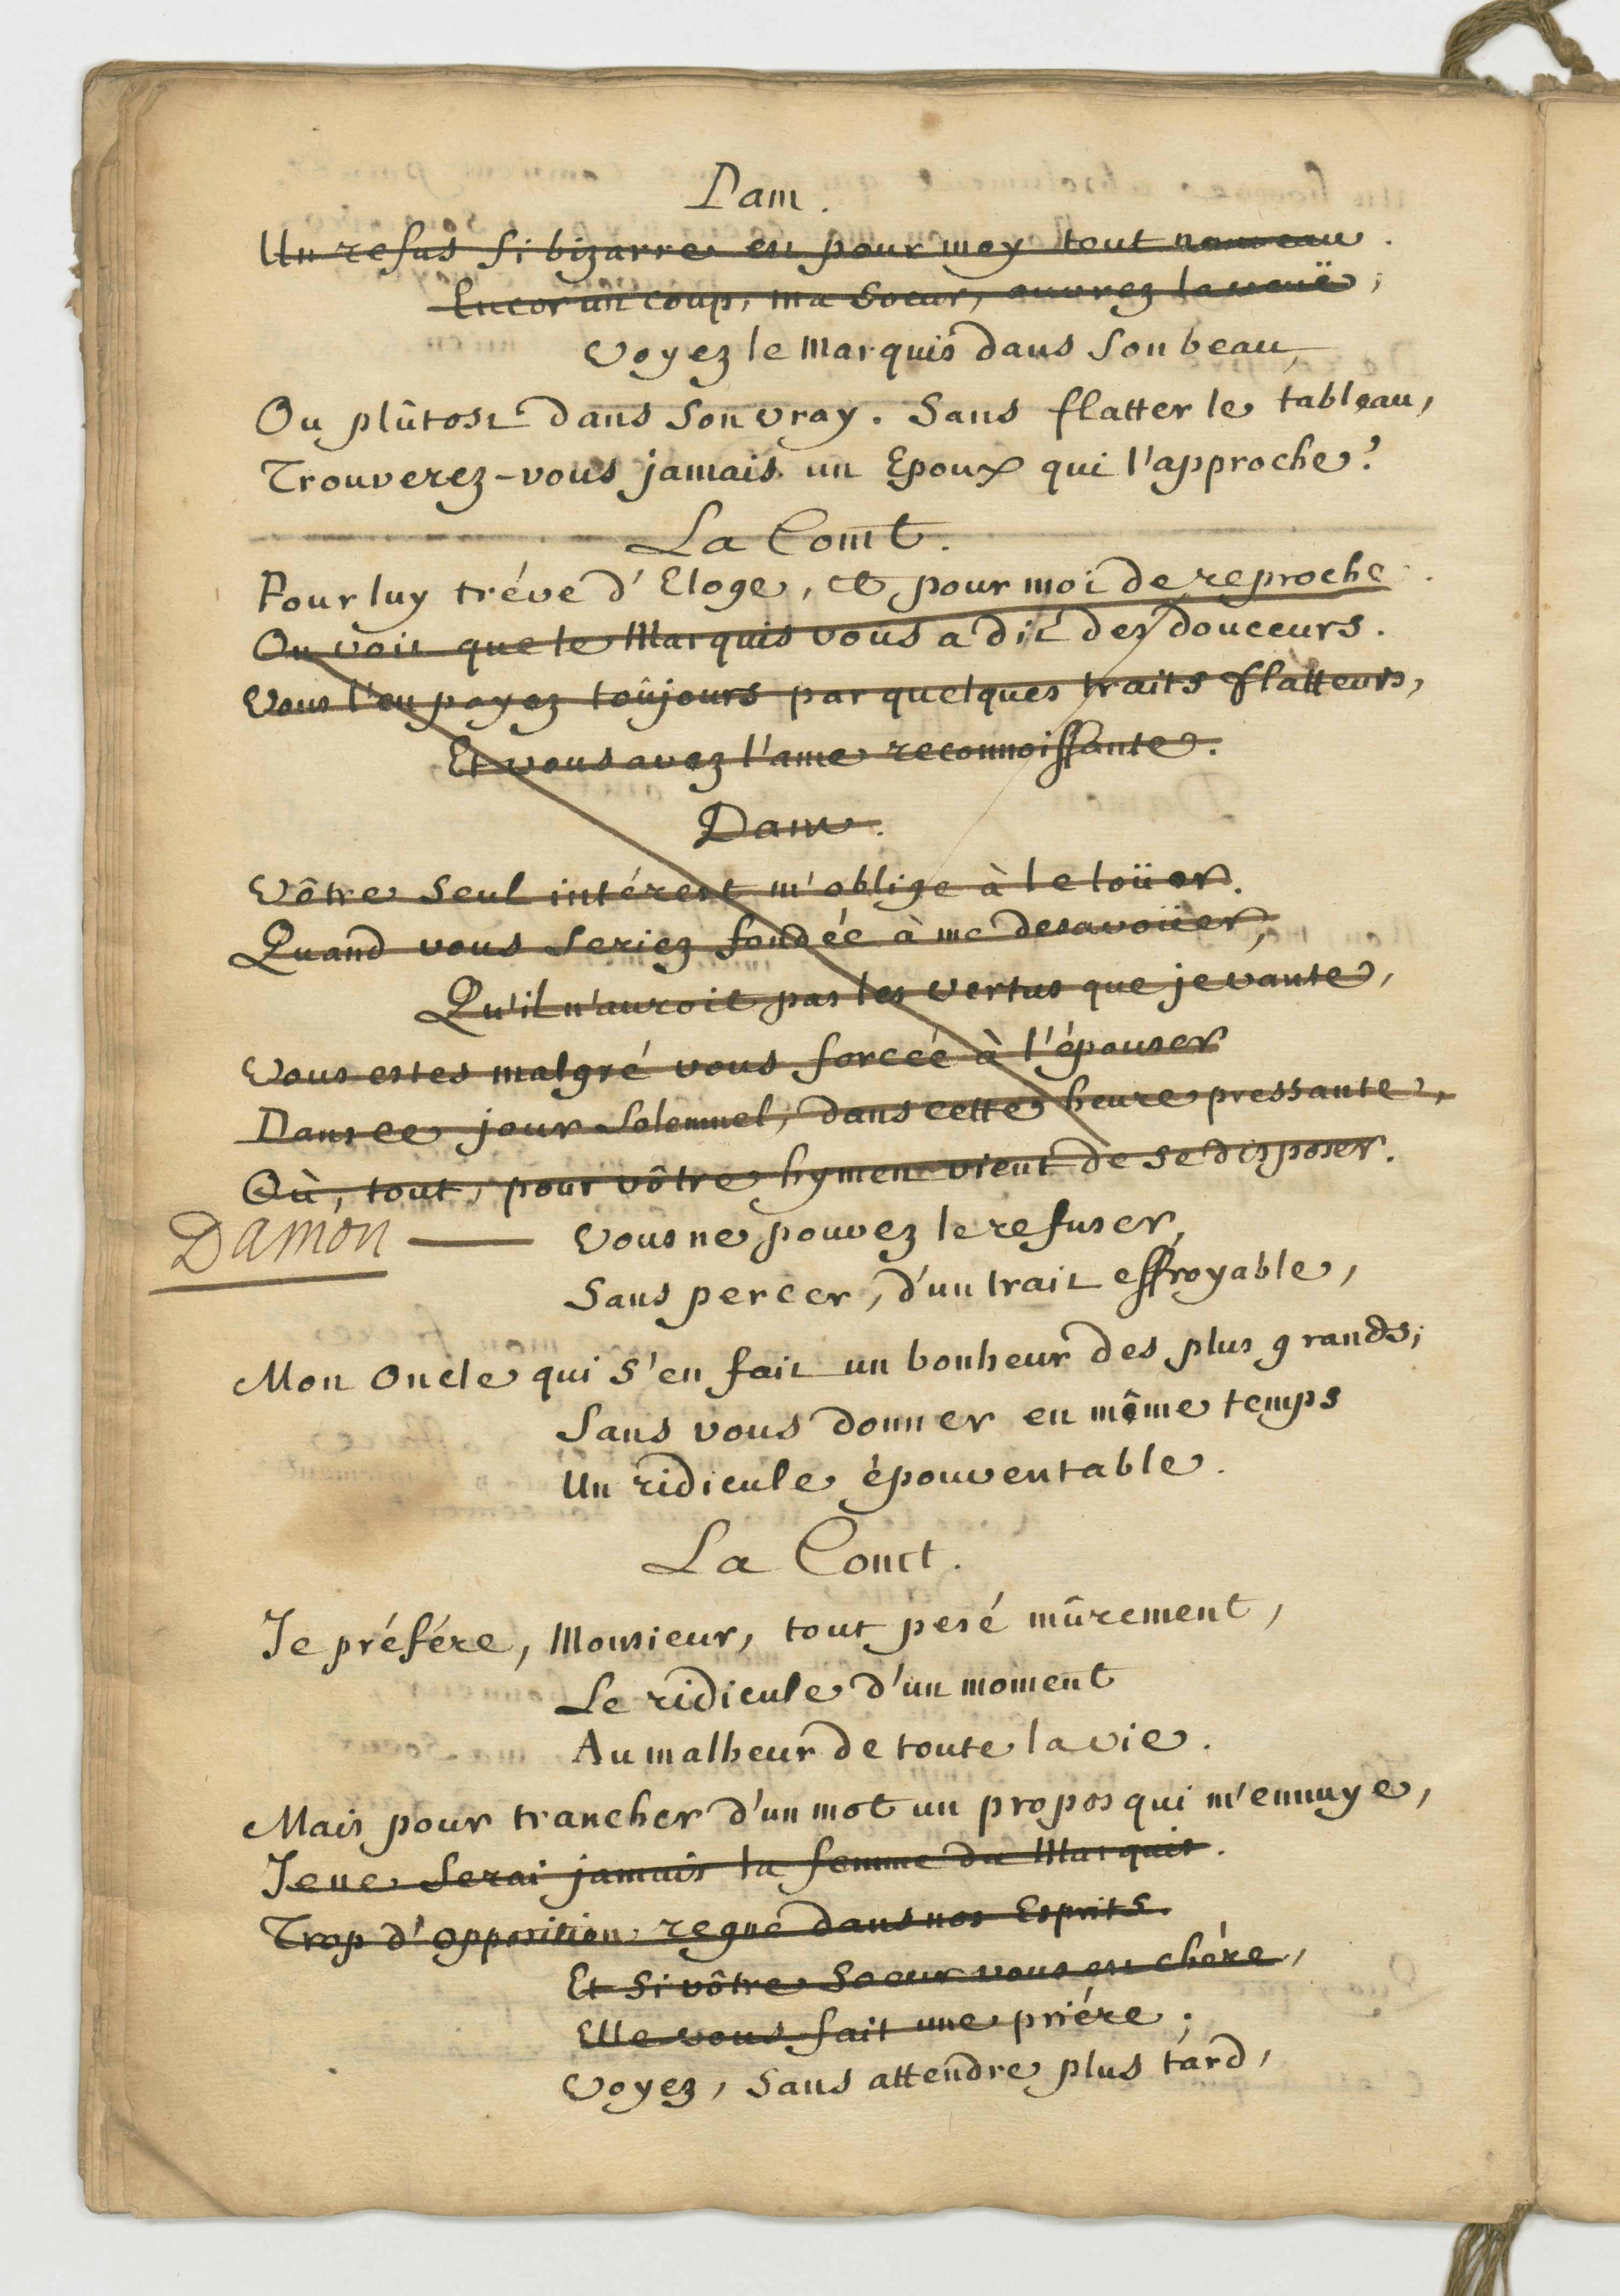 Dam.
Un refus si bizarre est pour moy tout nouveau.
Encor un coup, ma Soeur, ouvrez la veuë;
Voyez le Marquis dans son beau,
Ou plûtost dans son vray. Sans flatter le tableau,
Trouverez-vous jamais un Epoux qui l'approche?
La Comt.
Pour luy tréve d'Eloge, et pour moi de reproche.
On voit que le Marquis vous a dit des douceurs.
Vous l'en payez toûjours par quelques traits flatteurs,
Et vous avez l'ame reconnoissante.
Dam.
Vôtre seul intérest m'oblige à le loüer.
Quand vous seriez fondée à me desavoüer,
Qu'il n'auroit pas les vertus que je vante,
Vous estes malgré vous forcée à l'épouser
Dans ce jour solemnel, dans cette heure pressante,
Où, tout, pour vôtre hymen vient de se disposer.
Damon — Vous ne pouvez le refuser,
Sans percer, d'un trait effroyable,
Mon Oncle qui s'en fait un bonheur des plus grands;
Sans vous donner en même temps
Un ridicule épouventable.
La Comt.
Je préfére, Monsieur, tout pesé mûrement,
Le ridicule d'un moment
Au malheur de toute la vie.
Mais pour trancher d'un mot un propos qui m'ennuye,
Je ne serai jamais la femme du Marquis.
Trop d'opposition regne dans nos Esprits.
Et si vôtre Soeur vous est chére,
Elle vous fait une priére;
Voyez, sans attendre plus tard,